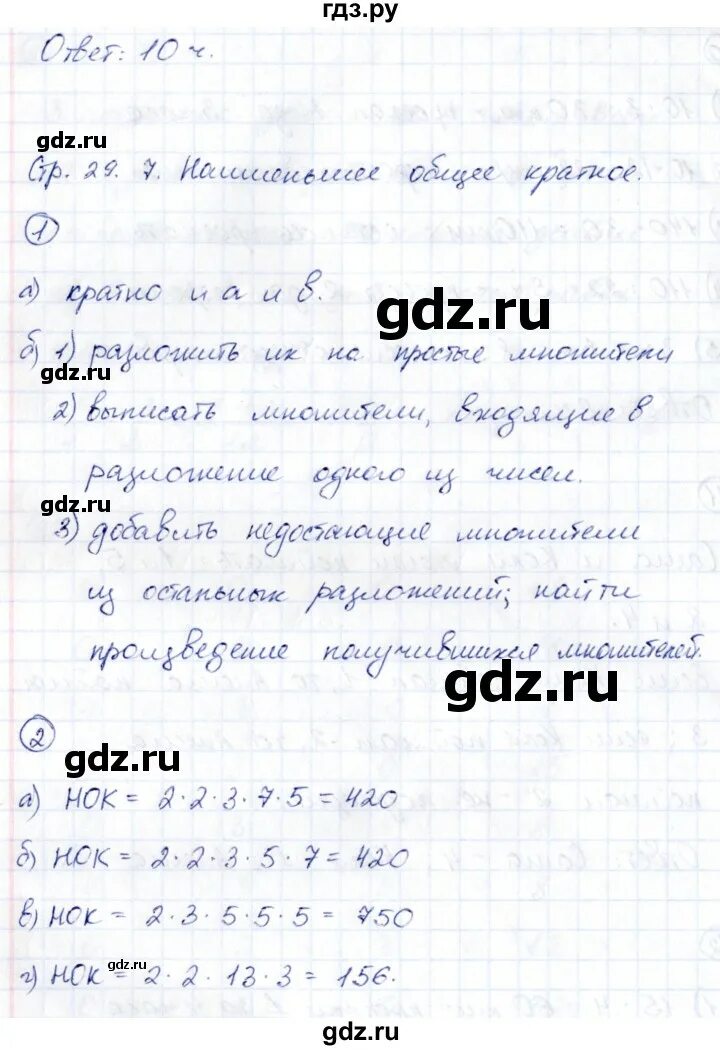 гдз.ру
Ответ: 10 ч.
gdz.ru
Стр. 29. 7. Наименьшее общее кратное.
1
а) кратно и а и в.
gdz.ru
б) 1) разложить их на простые множители
gdz.ru
2) выписать множители, входящие в
разложение одного из чисел.
gdz.ru
3) добавить недостающие множители
из остальных разложений; найти
произведение получившихся множителей.
gdz.ru
2
gdz.ru
а) НОК = 2·2·3·7·5 = 420
б) НОК = 2·2·3·5·7 = 420
в) НОК = 2·3·5·5·5 = 750
gdz.ru
г) НОК = 2·2·13·3 = 156.
gdz.ru